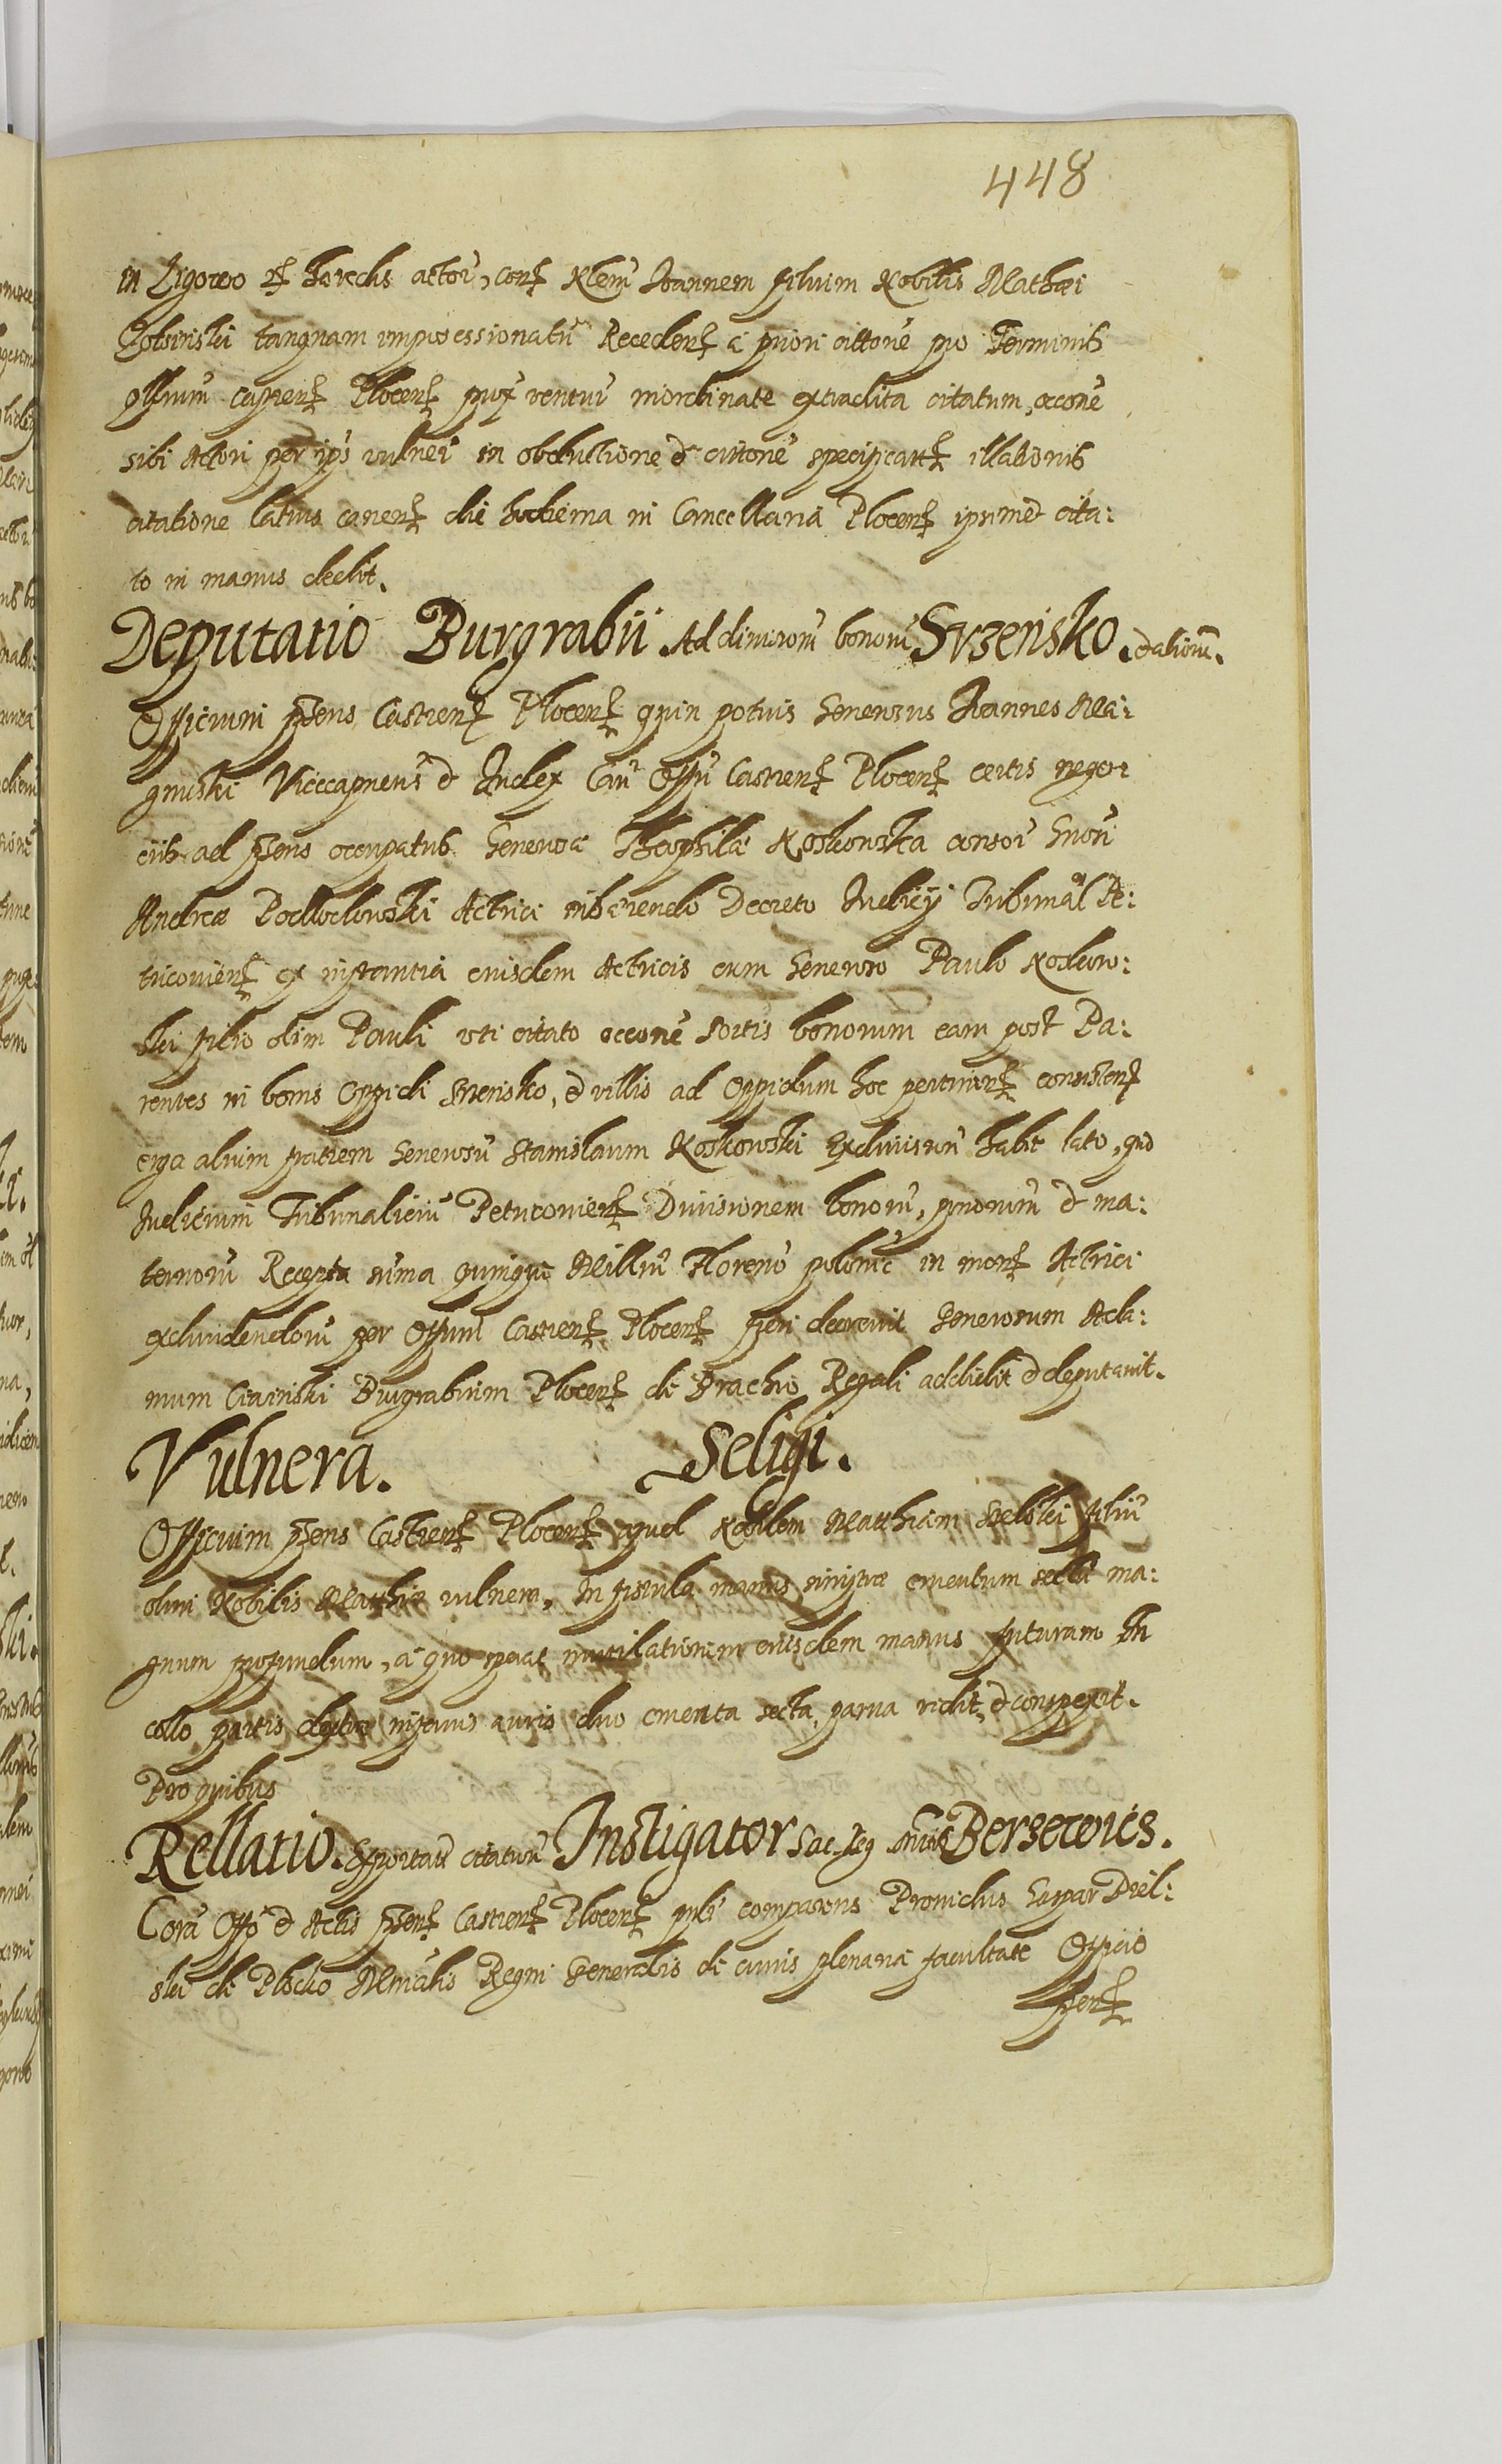 448
in Zigowo et haredis actor, cons Nlem Joannem filium Nobilis Mathæi
tanquam impossessionatu Recedens a priori cittone pro Terminis
Capnens Plocens prox ventur inordinate extradita citatum, occone
sibi Actori per ips vulner in obductione et cittone specificatt illationis
citatione latius canens die hodierna in Cancellaria Plocens ipsimet cita:
to in manus dedit.
Deputatio Burgrabii. Ad dimison bonor Srzensko. dationu.
Officium pñens Castrens Plocens quin potius Generosus Joannes Ma:
gnuski Vicecapneus et Judex Cau Offii Castrens Plocens certis nego:
ciis ad pñens occupatus Generosæ Theophilæ Koskowska consor Gnosi
Andreæ Podlodowski Actrici inhærendo Decreto Judicij Tribunal Pe:
tricoviens ex instantia eiusdem Actricis cum Generoso Paulo Koskow:
ski filio olim Pauli uti citato occone sortis bonorum eam post Pa:
rentes in bonis Oppidi Srzensko, et villis ad Oppidum hoc pertinens consistens
erga alium fratrem Generosu Stanislaum Koskowski Exdivision habit lato, quo
Judicium Tribunaliciu Petricoviens Divisionem bonoru, pnorum et ma:
ternoru Recepta suma quinque Milliu Florenu polonic in mons Actrici
exdividendoru per Offum Castrens Plocens fieri decrevit Generosum Ada:
mum Burgrabium Plocens de Brachio Regali addidit et deputavit.
Vulnera. Seligi.
Officium pñens Castrens Plocens apud Nobilem Matthiam Selski filiu
olim Nobilis Matthiæ vulnera, In fistula manus sinistræ cruentum sectu ma:
gnum profundum, a quo sperat mutilationem eiusdem manus futuram In
collo partis dextræ inferius auris duo cruenta secta parva vidit, et conspexit.
Pro quibus
Rellatio. Apportatæ citation Instigator Sac. Reg. Berzewics.
Cora Offo et Actis pñens Castrens Plocens psli comparens Providus Gaspar Diel:
ski de Plocko Mincalis Regni Generalis de cuius plenaria facultate Officio
pñens